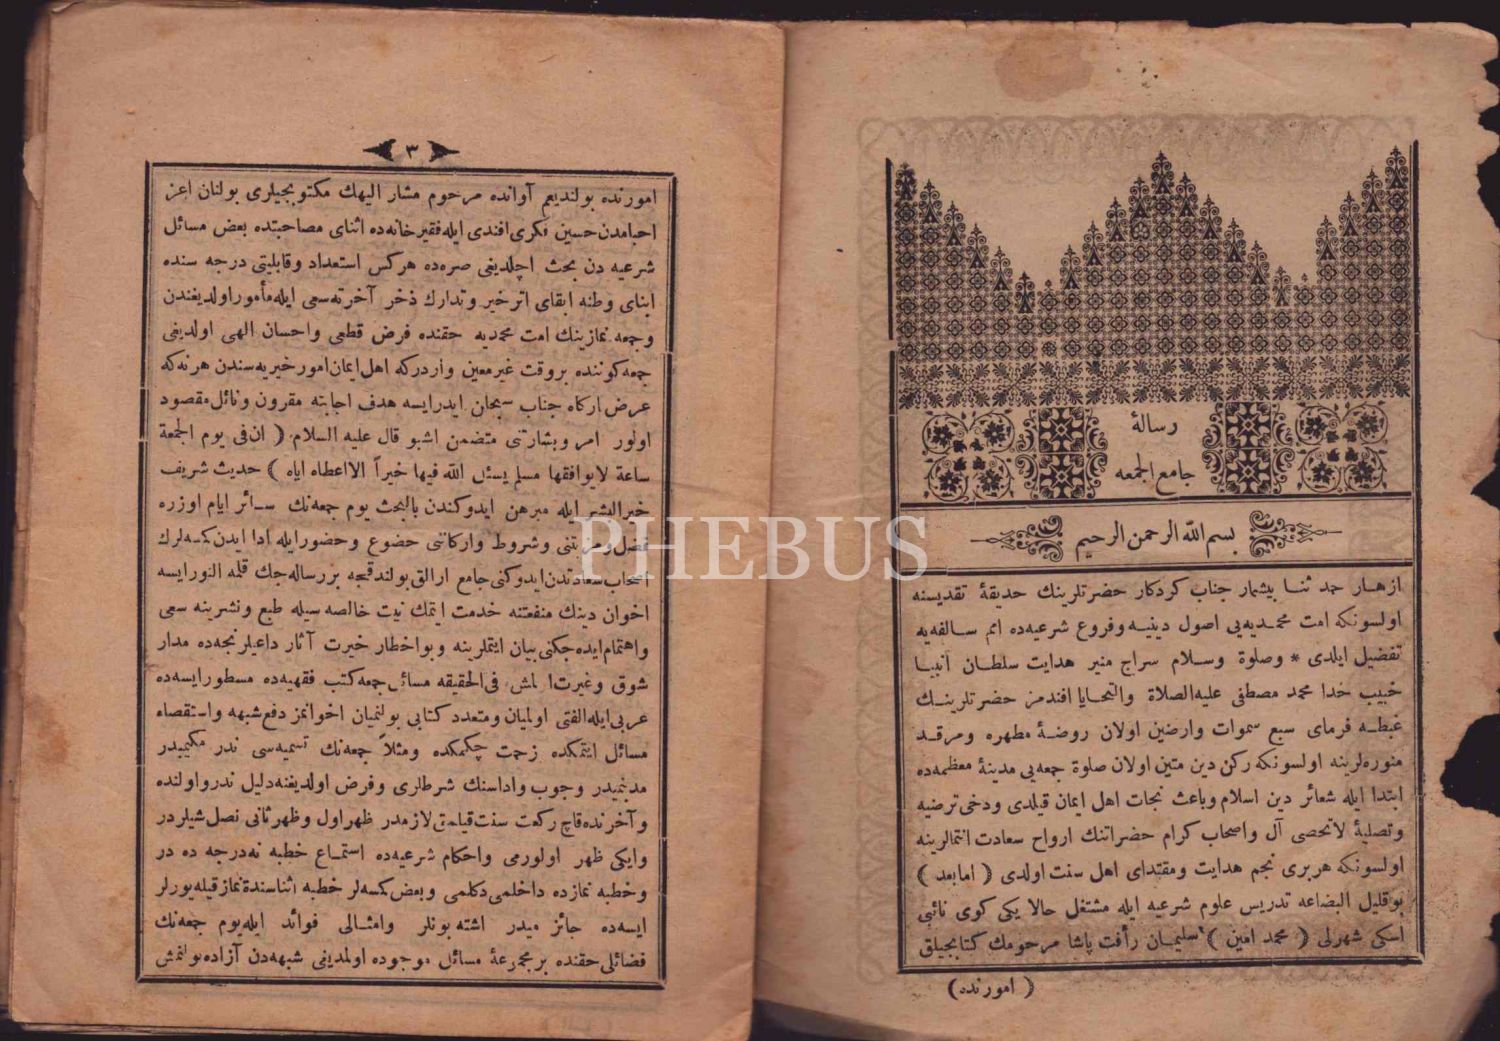 رسالۀ
جامع الجمعه
بسم الله الرحمن الرحيم
ازهار حمد ثنا بيشمار جناب كردكار حضرتلرينك حديقۀ تقديسنه
اولسونكه امت محمديه‌يى اصول دينيه وفروع شرعيه‌ده امم سالفه‌يه
تفضيل ايلدى * وصلوة وسلام سراج منير هدايت سلطان انبيا
حبيب خدا محمد مصطفى عليه الصلاة والتحايا افندمز حضرتلرينك
غبطه فرماى سبع سموات وارضين اولان روضۀ مطهره ومرقد
منوره‌لرينه اولسونكه ركن دين متين اولان صلوة جمعه‌يى مدينۀ معظمه‌ده
ابتدا ايله شعائر دين اسلام وباعث نجات اهل ايمان قيلدى ودخى ترضيه
وتصليۀ لاتحصى آل واصحاب كرام حضراتنك ارواح سعادت انتمالرينه
اولسونكه هربرى نجم هدايت ومقتداى اهل سنت اولدى ( امابعد )
بوقليل البضاعه تدريس علوم شرعيه ايله مشتغل حالا يكى كوى نائبى
اسكى شهرلى ( محمد امين ) سليمان رأفت پاشا مرحومك كتابجيلق
( امورنده )
٣
امورنده بولنديغم آوانده مرحوم مشار اليهك مكتوبجيلرى بولنان اعز
احبامدن حسين فكرى افندى ايله فقيرخانه‌ده اثناى مصاحبتده بعض مسائل
شرعيه دن بحث اچلديغى صره‌ده هركس استعداد وقابليتى درجه سنده
ابناى وطنه ابقاى اثر خير وتدارك ذخر آخرته سعى ايله مأمور اولديغندن
وجمعه نمازينك امت محمديه حقنده فرض قطعى واحسان الهى اولديغى
جمعه كوننده بروقت غيرمعين واردركه اهل ايمان امور خيريه‌سندن هرنه‌كه
عرض اركاه جناب سبحان ايدرايسه هدف اجابته مقرون ونائل مقصود
اولور امر وبشارتنى متضمن اشبو قال عليه السلام ( ان فى يوم الجمعة
ساعة لايوافقها مسلم يسئل الله فيها خيراً الااعطاه اياه ) حديث شريف
خيرالبشر ايله مبرهن ايدوكندن بالبحث يوم جمعه‌نك سائر ايام اوزره
فضل ومزيتنى وشروط واركاننى خضوع وحضور ايله ادا ايدن كمسه‌لرك
اصحاب سعادتدن ايدوكنى جامع ارالق بولندقجه بررساله‌جك قلمه النورايسه
اخوان دينك منفعتنه خدمت ايتمك نيت خالصه سيله طبع ونشرينه سعى
واهتمام ايده‌جكنى بيان ايتملرينه وبواخطار خيرت آثار داعيلرنجه‌ده مدار
شوق وغيرت اولمش فى الحقيقه مسائل جمعه كتب فقهيه‌ده مسطور ايسه‌ده
عربى ايله الفتى اولميان ومتعدد كتابى بولنميان اخوانمز دفع شبهه واستقصاء
مسائل ايتمكده زحمت چكمكده ومثلاً جمعه‌نك تسميه‌سى ندر مكيميدر
مدنيميدر وجوب واداسنك شرطلرى وفرض اولديغنه دليل ندر واولنده
وآخرنده قاچ ركعت سنت قيلمق لازمدر ظهر اول وظهر ثانى نصل شيلردر
وايكى ظهر اولورمى واحكام شرعيه‌ده استماع خطبه نه‌درجه ده در
وخطبه نمازده داخلمى دكلمى وبعض كمسه‌لر خطبه اثناسنده نماز قيله‌يورلر
ايسه‌ده جائز ميدر اشته بونلر وامثالى فوائد ايله يوم جمعه‌نك
فضائلى حقنده برمجموعۀ مسائل موجوده اولمدينى شبهه‌دن آزاده بولنمش
PHEBUS